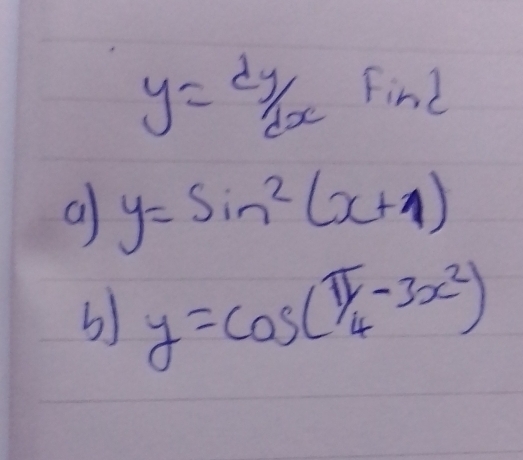 y = dy/dx Find
a) y = Sin²(x+1)
b) y = cos(π/4 - 3x²)